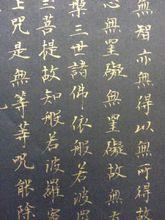 無智亦無得以無所得
心無罣礙無罣礙故無
槃三世諸佛依般若波羅
三菩提故知般若波羅蜜
上咒是無等等咒能除